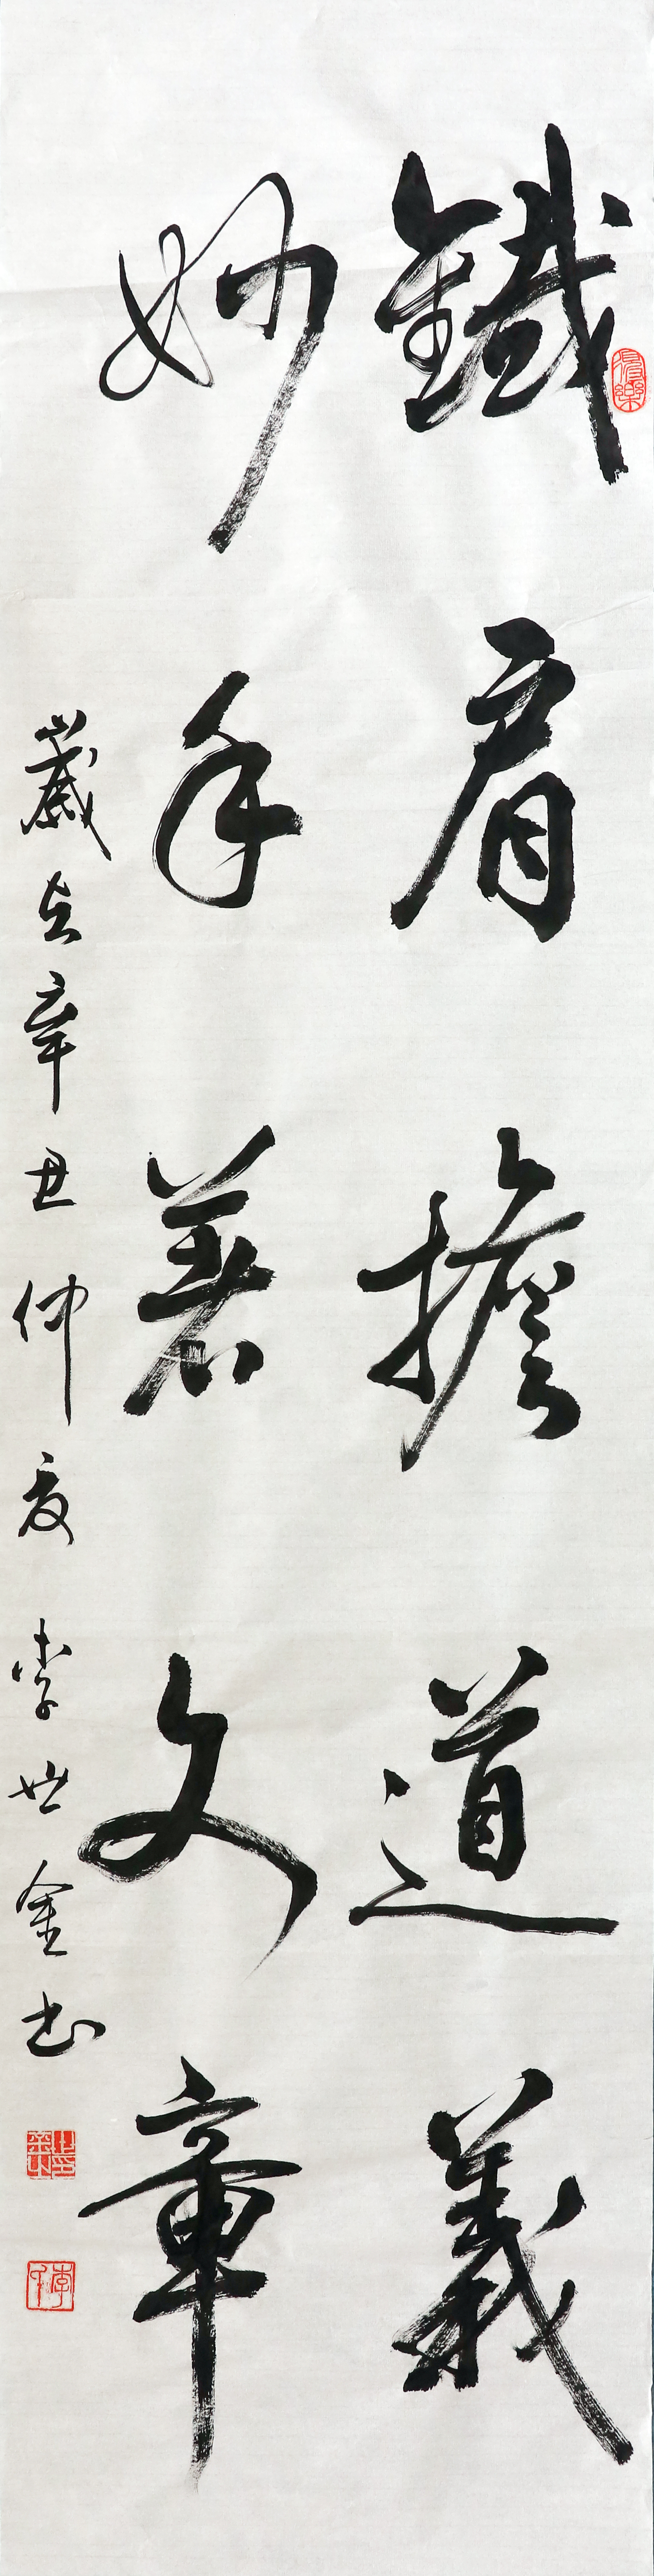 鐵肩擔道義
妙手著文章
歲在辛丑仲夏 李世金書